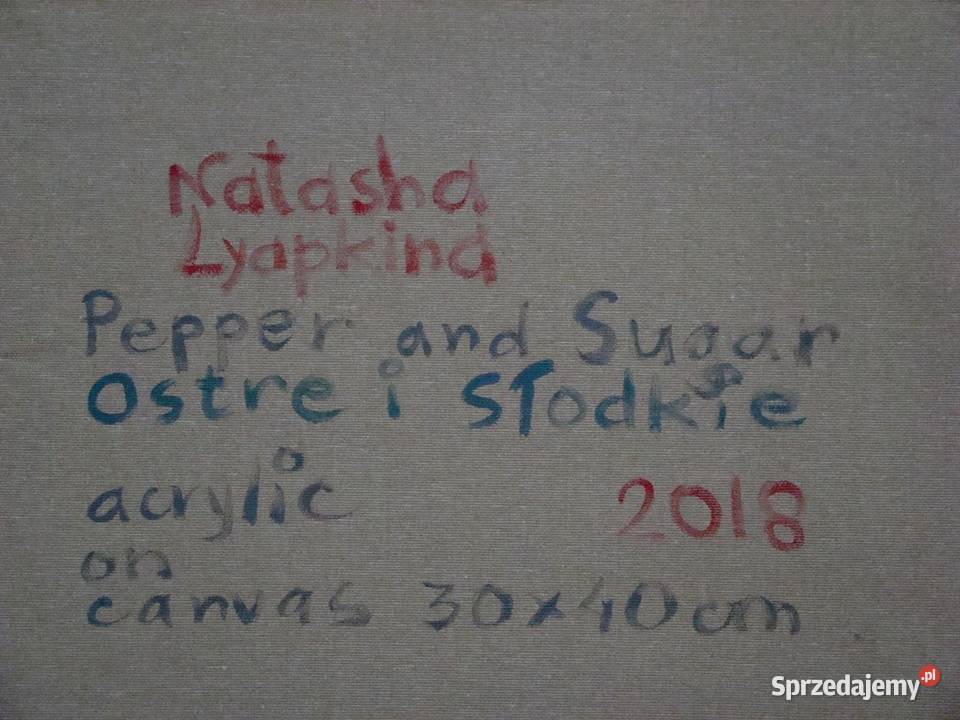 Natasha
Lyapkina
Pepper and Sugar
Ostre i Słodkie
acrylic 2018
on
canvas 30x40cm
Sprzedajemy.pl